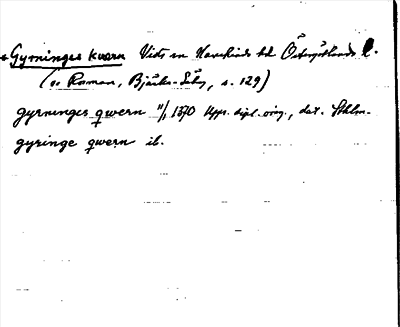 *Gyrninges kvarn Vids sn Hanekinds hd Östergötlands l.
(se Roman, Bjärka-Säby, s. 129)
gyrninges qwern 11/1 1370 Upps. dipl. orig., dat. Sthlm.
gyringe qwern ib.